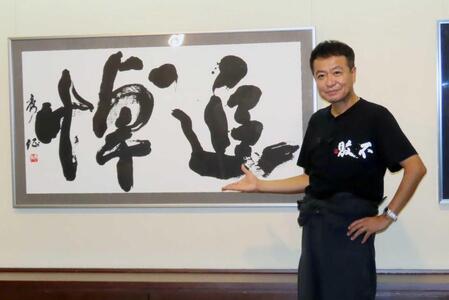 追悼
不敗